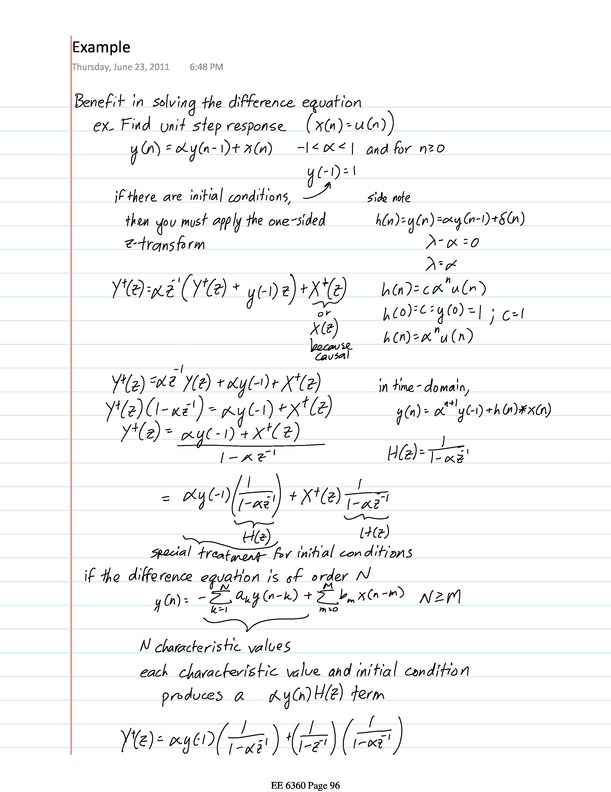 Example
Thursday, June 23, 2011 6:48 PM
Benefit in solving the difference equation
ex. Find unit step response (x(n)=u(n))
y(n)=αy(n-1)+x(n) -1<α<1 and for n≥0
y(-1)=1
if there are initial conditions,
then you must apply the one-sided
z-transform
side note
h(n)=y(n)=αy(n-1)+δ(n)
λ-α=0
λ=α
h(n)=cαⁿu(n)
h(0)=c=y(0)=1; c=1
h(n)=αⁿu(n)
Y⁺(z)=αz⁻¹(Y⁺(z)+y(-1)z)+X⁺(z)
or
X(z)
because
causal
Y⁺(z)=αz⁻¹Y(z)+αy(-1)+X⁺(z)
Y⁺(z)(1-αz⁻¹)=αy(-1)+X⁺(z)
Y⁺(z)=αy(-1)+X⁺(z)
1-αz⁻¹
in time-domain,
y(n)=αⁿ⁺¹y(-1)+h(n)*x(n)
H(z)=1/(1-αz⁻¹)
= αy(-1)(1/(1-αz⁻¹))+X⁺(z) 1/(1-αz⁻¹)
H(z) H(z)
special treatment for initial conditions
if the difference equation is of order N
y(n)=-∑ₖ₌₁ᴺ aₖy(n-k)+∑ₘ₌₀ᴹ bₘx(n-m) N≥M
N characteristic values
each characteristic value and initial condition
produces a αy(n)H(z) term
Y⁺(z)=αy(-1)(1/(1-αz⁻¹))+(1/(1-z⁻¹))(1/(1-αz⁻¹))
EE 6360 Page 96